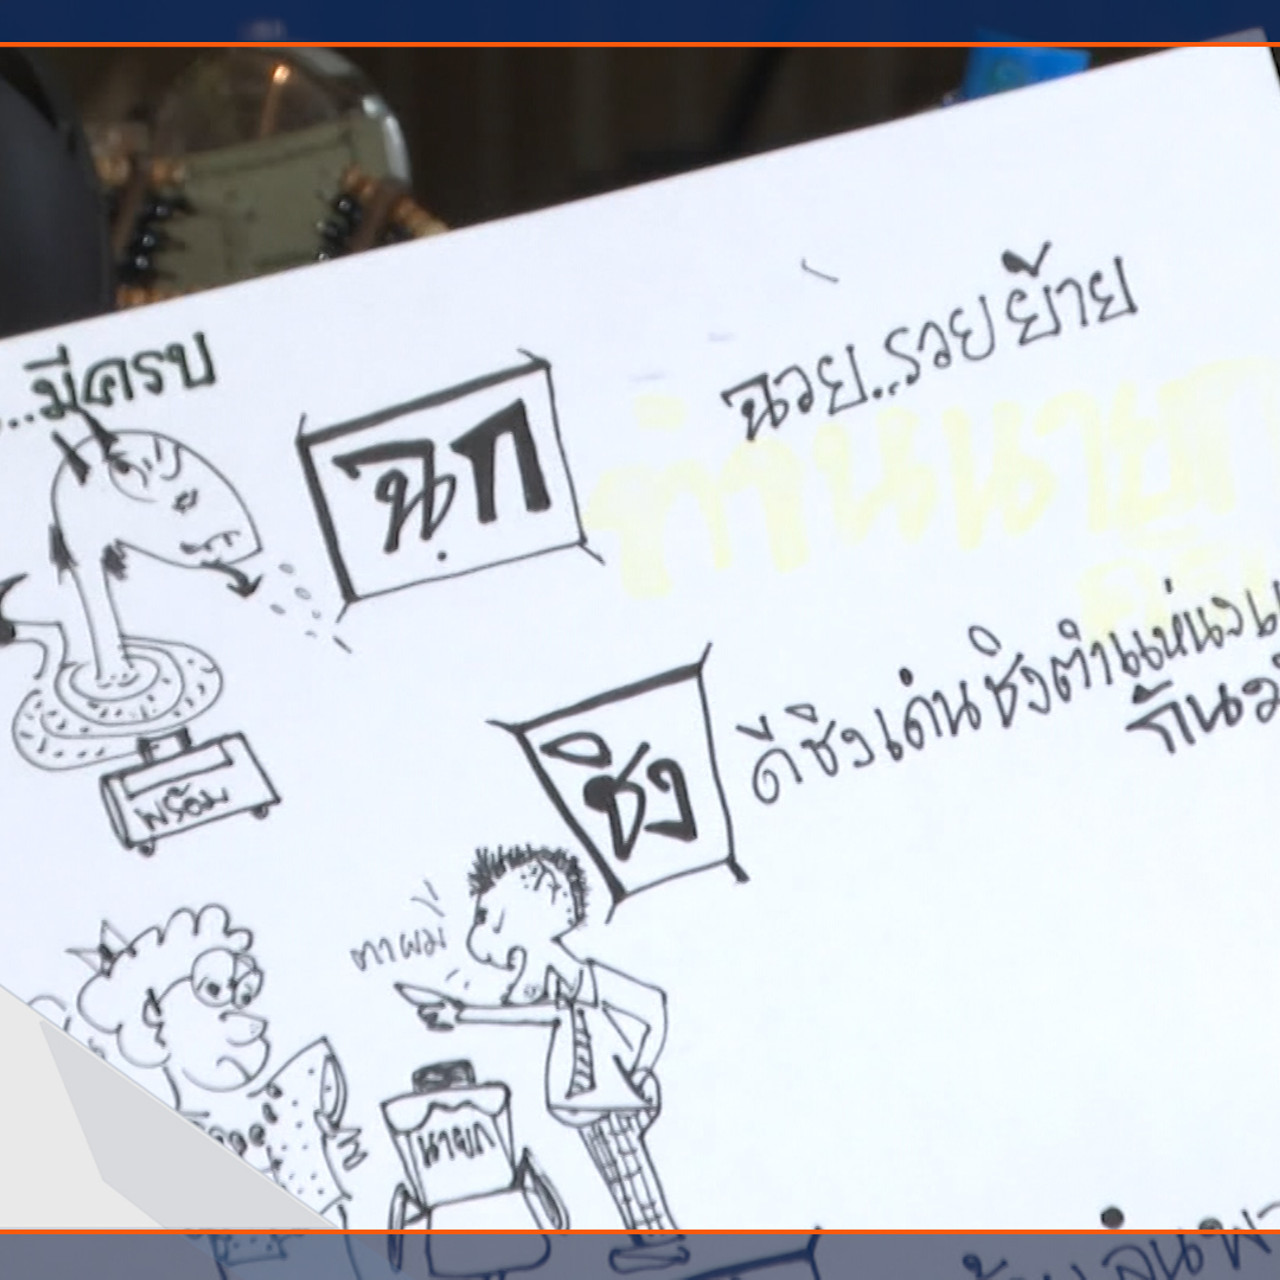 ...มีครบ
ฉก
ฉวย..รวยย้าย
ท่านนายก
พร้อม
ชิง
ดีชิงเด่นชิงตำแหน่ง
กัน
ตาผม
นายก